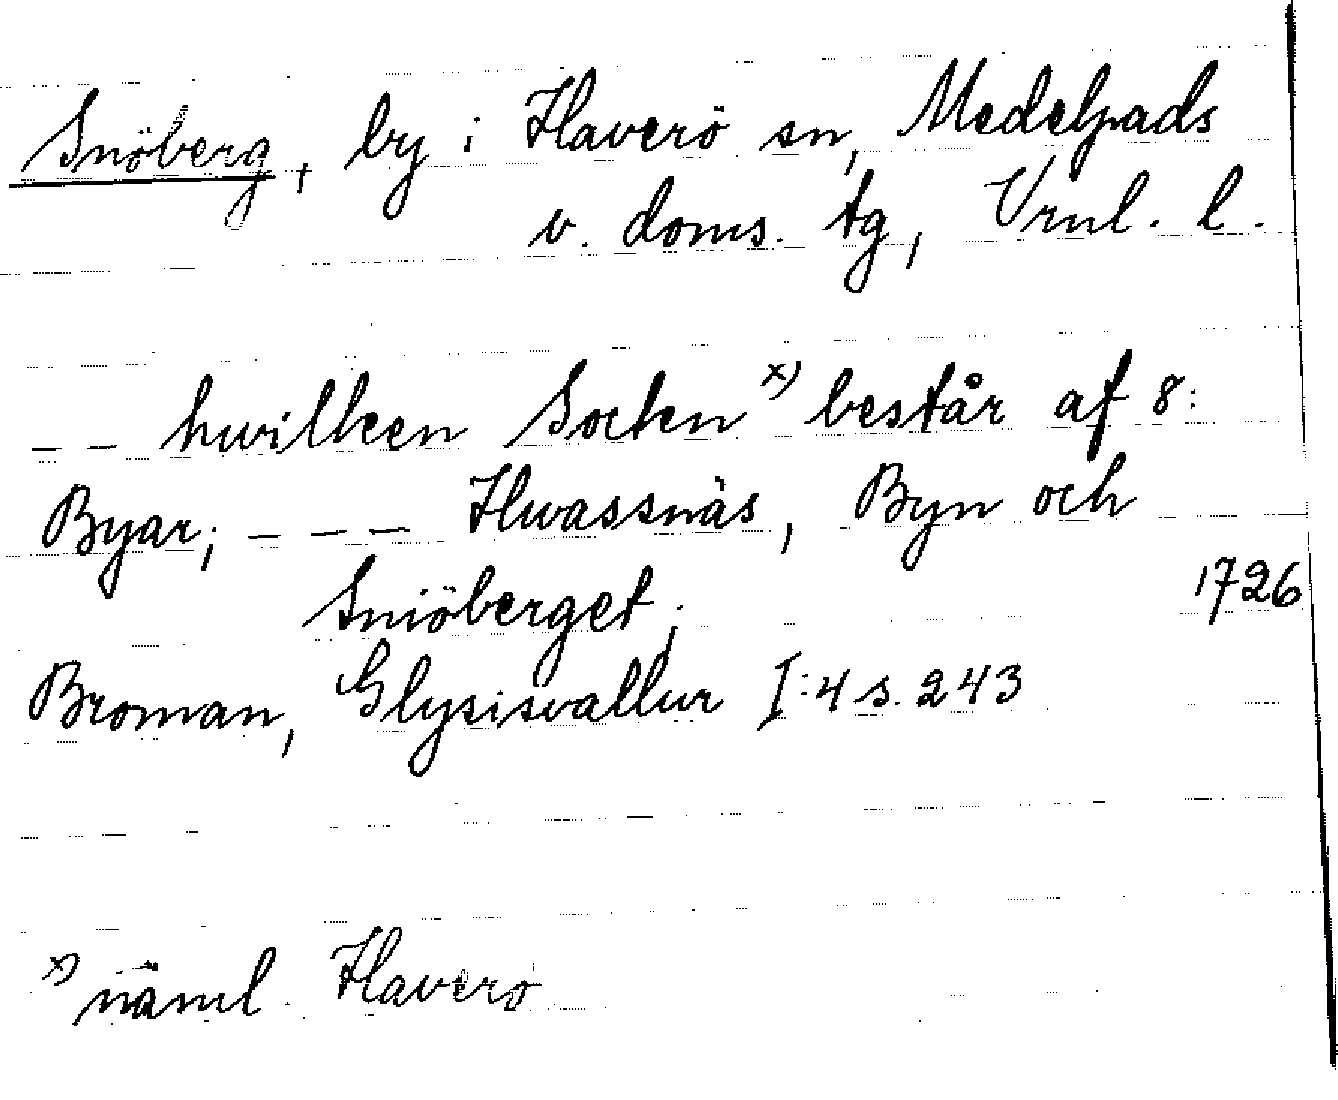 Snöberg, by i Haverö sn, Medelpads
v. doms. tg, Vrnl. l.
_ _ hwilken Socken x) består af 8:
Byar; _ _ _ Hwassnäs, Byn och
Sniöberget;
1726
Broman, Glysisvallur I:4 s. 243
x) näml. Haverö